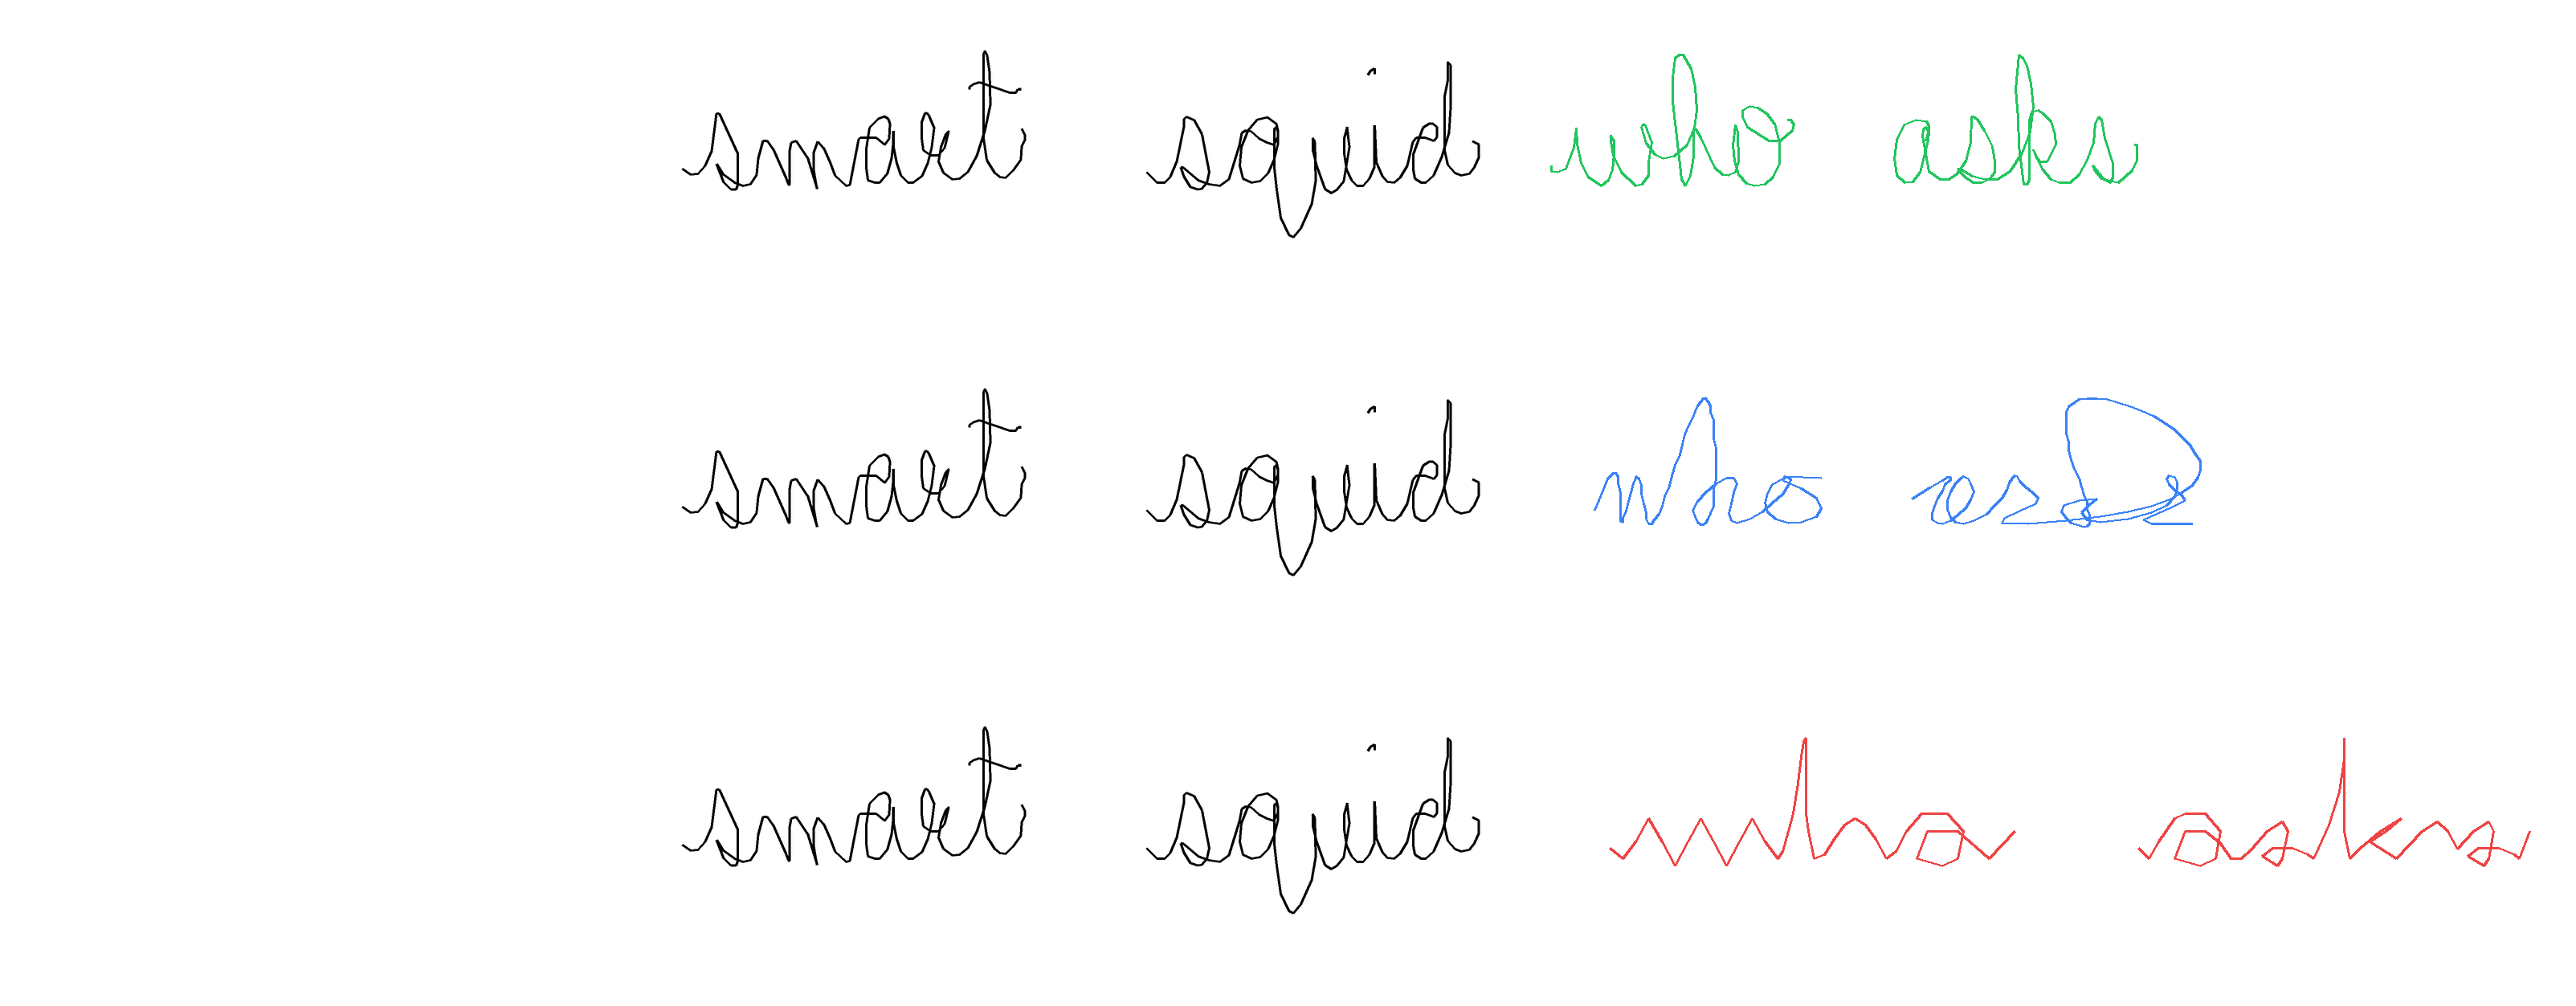 smart squid who asks
smart squid who asks
smart squid who asks